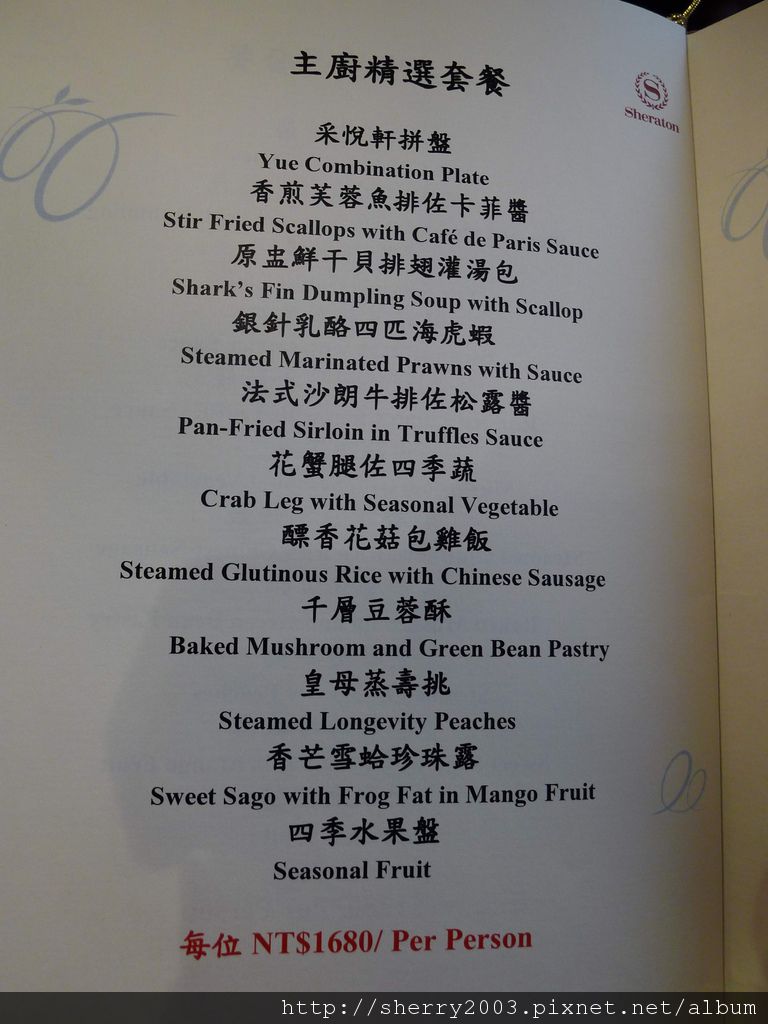 主廚精選套餐
S
Sheraton
采悅軒拼盤
Yue Combination Plate
香煎芙蓉魚排佐卡菲醬
Stir Fried Scallops with Café de Paris Sauce
原盅鮮干貝排翅灌湯包
Shark's Fin Dumpling Soup with Scallop
銀針乳酪四匹海虎蝦
Steamed Marinated Prawns with Sauce
法式沙朗牛排佐松露醬
Pan-Fried Sirloin in Truffles Sauce
花蟹腿佐四季蔬
Crab Leg with Seasonal Vegetable
醥香花菇包雞飯
Steamed Glutinous Rice with Chinese Sausage
千層豆蓉酥
Baked Mushroom and Green Bean Pastry
皇母蒸壽挑
Steamed Longevity Peaches
香芒雪蛤珍珠露
Sweet Sago with Frog Fat in Mango Fruit
四季水果盤
Seasonal Fruit
每位 NT$1680/ Per Person
http://sherry2003.pixnet.net/album